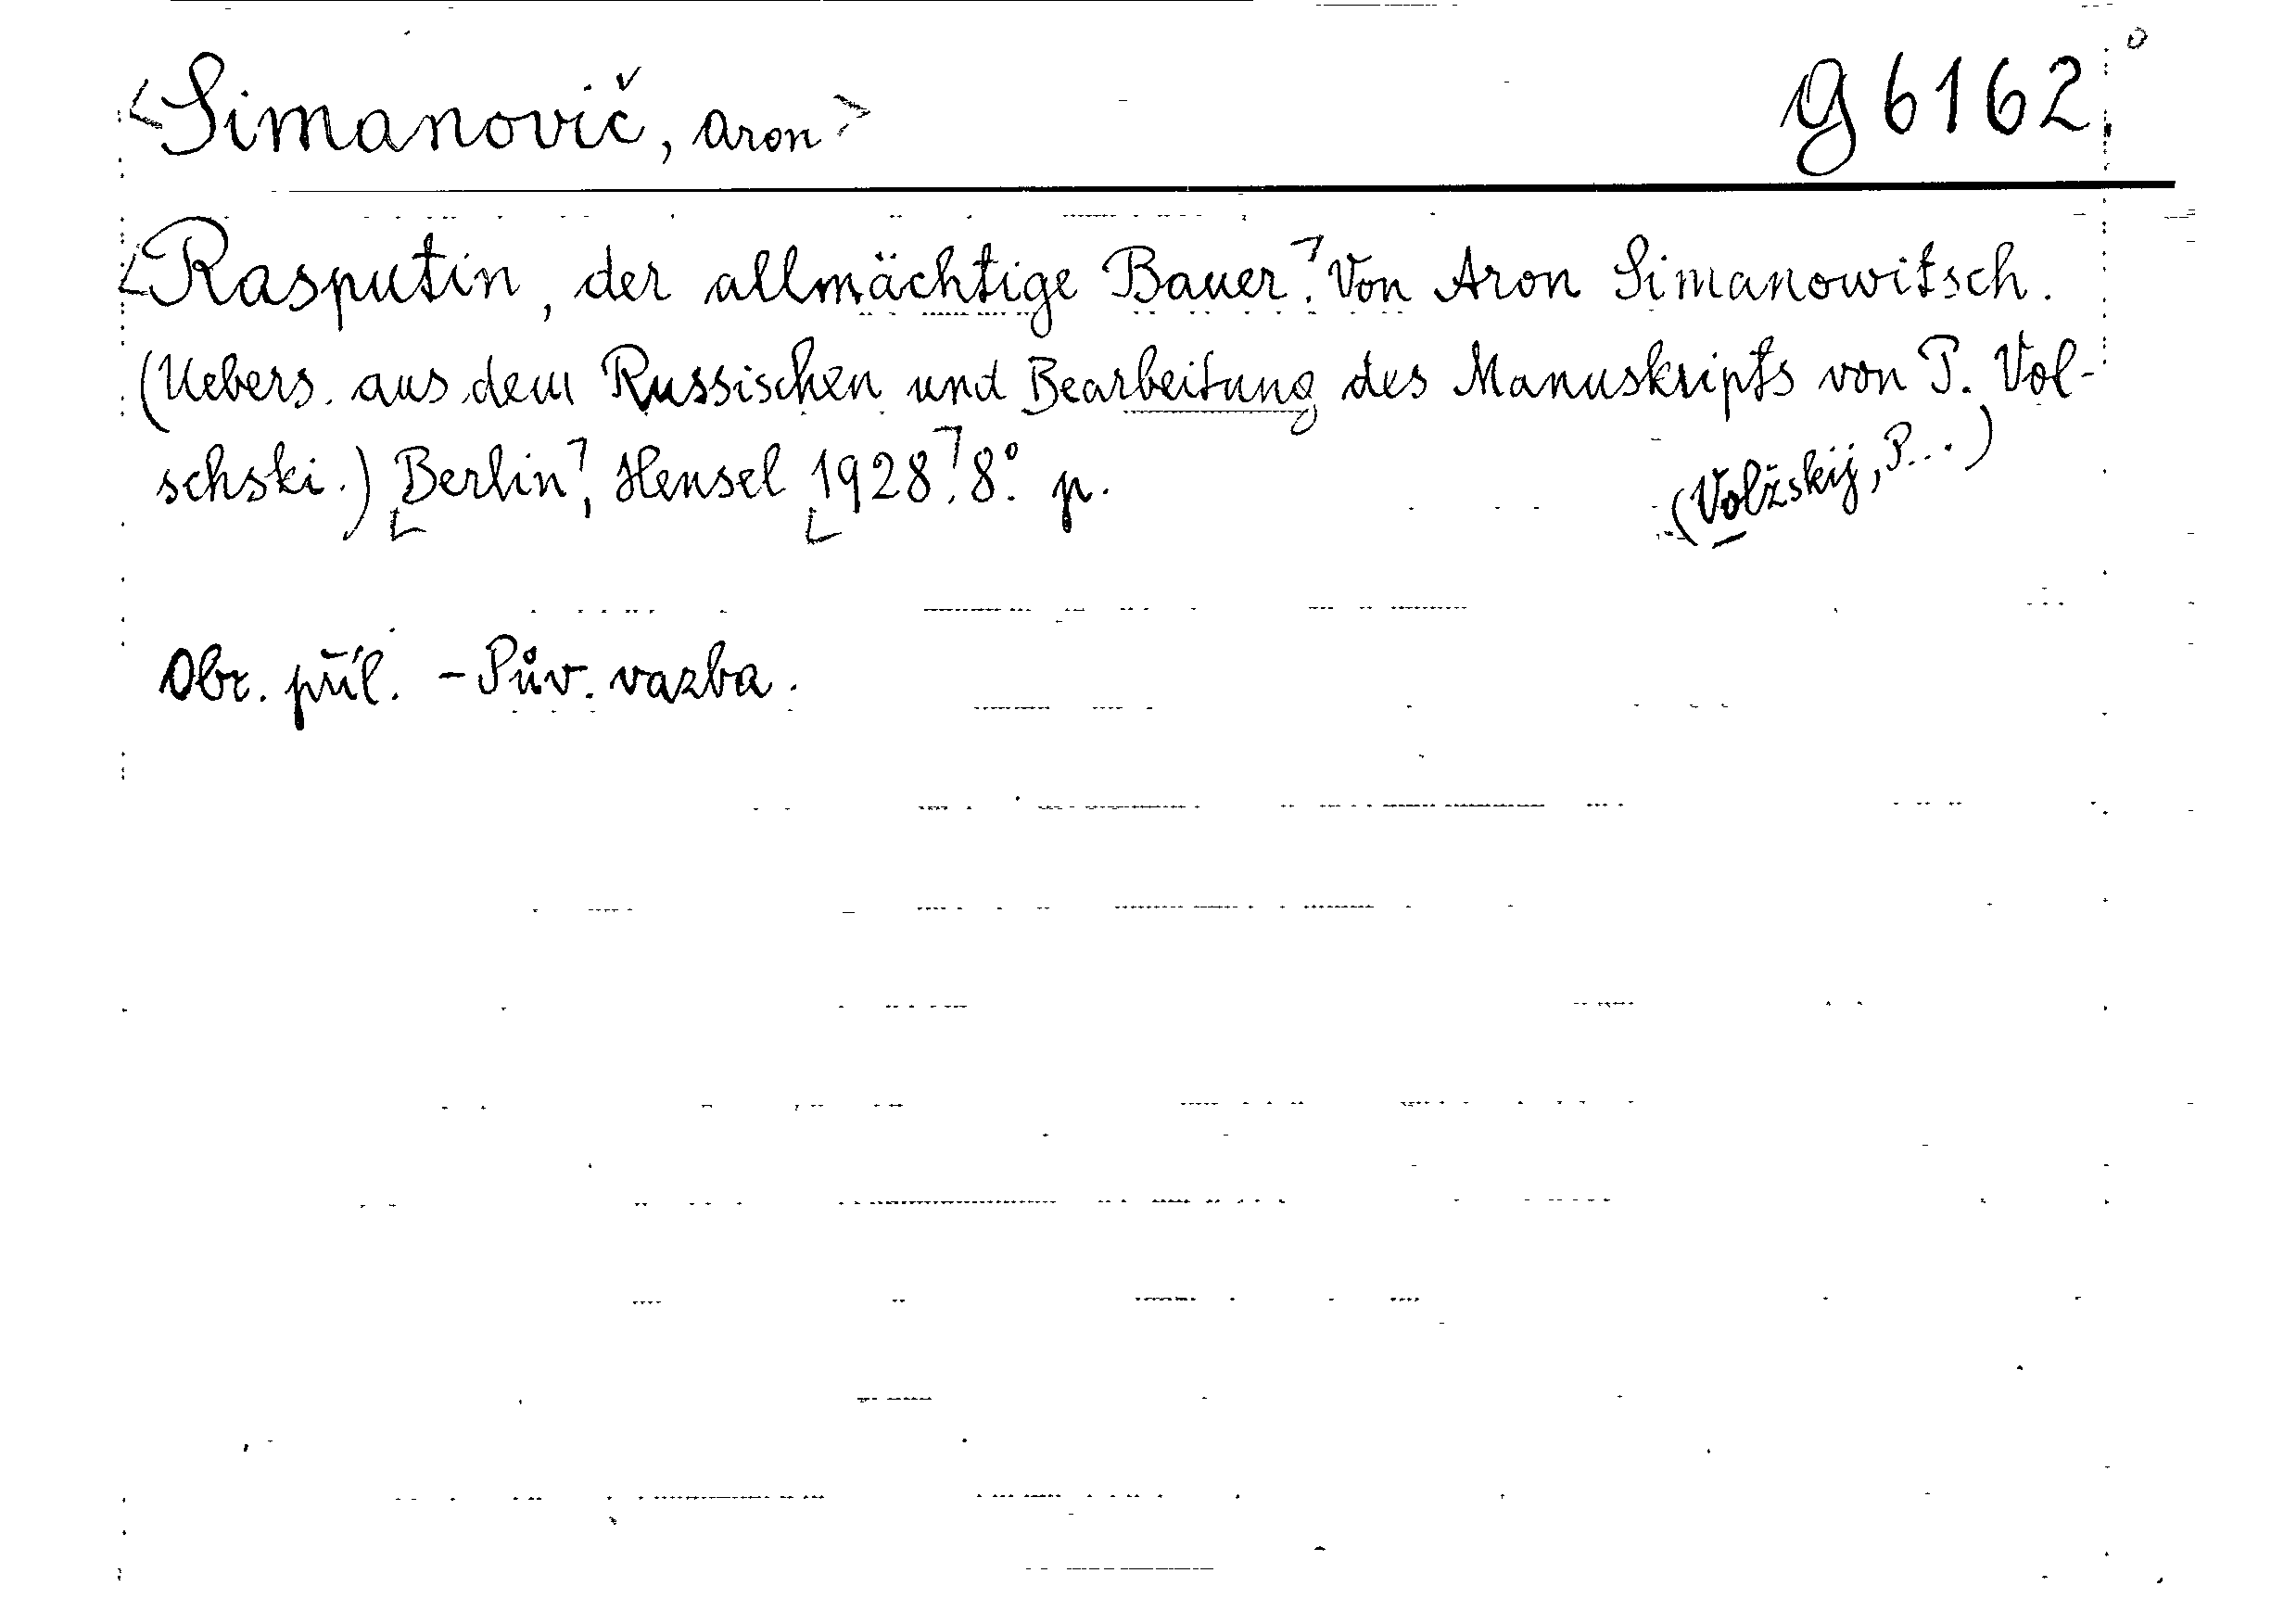 <Simanovič, Aron> g 6162
Rasputin, der allmächtige Bauer. Von Aron Simanowitsch.
(Uebers. aus dem Russischen und Bearbeitung des Manuskripts von P. Vol-
schski.) Berlin, Hensel 1928. 8°. p.
(Volžskij, P...)
Obr. příl. - Pův. vazba.